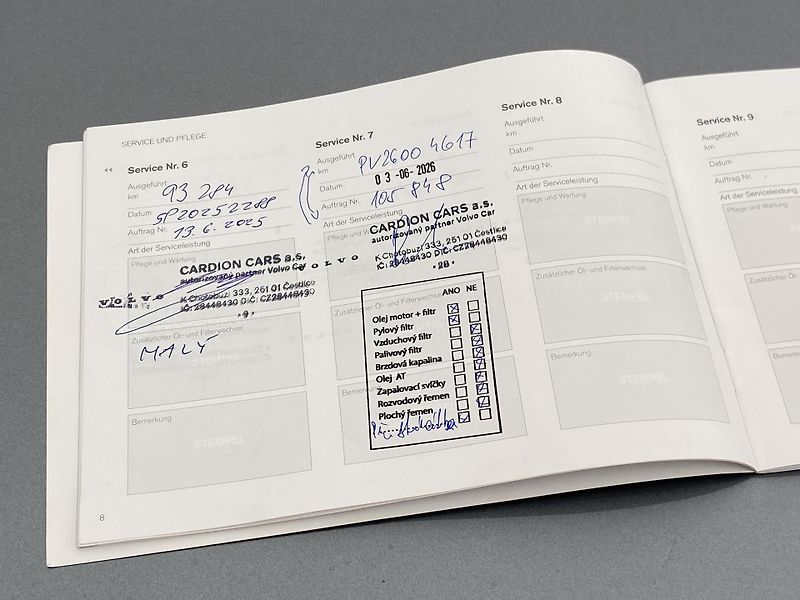 SERVICE UND PFLEGE
Service Nr. 6
Ausgeführt
km
93 284
Datum
SP20252288
Auftrag Nr.
13.6.2025
Art der Serviceleistung
Pflege und Wartung
CARDION CARS a.s.
autorizovaný partner Volvo Car
K Chotobuzi 333, 251 01 Čestlice
IČ: 28448430 DIČ: CZ28448430
- 9 -
VOLVO
Zusätzlicher Öl- und Filterwechsel
MALÝ
STEMPEL
Bemerkung
STEMPEL
8
Service Nr. 7
Ausgeführt
km
PV2600 4617
Datum
03-06-2026
Auftrag Nr.
105 848
Art der Serviceleistung
Pflege und Wartung
CARDION CARS a.s.
autorizovaný partner Volvo Car
K Chotobuzi 333, 251 01 Čestlice
IČ: 28448430 DIČ: CZ28448430
- 28 -
VOLVO
Zusätzlicher Öl- und Filterwechsel
ANO NE
Olej motor + filtr
Pylový filtr
Vzduchový filtr
Palivový filtr
Brzdová kapalina
Olej AT
Zapalovací svíčky
Rozvodový řemen
Plochý řemen
Bemerkung
Service Nr. 8
Ausgeführt
km
Datum
Auftrag Nr.
Art der Serviceleistung
Pflege und Wartung
STEMPEL
Zusätzlicher Öl- und Filterwechsel
STEMPEL
Bemerkung
STEMPEL
Service Nr. 9
Ausgeführt
km
Datum
Auftrag Nr.
Art der Serviceleistung
Pflege und Wartung
Zusätzlicher Öl- und
Bemerkung